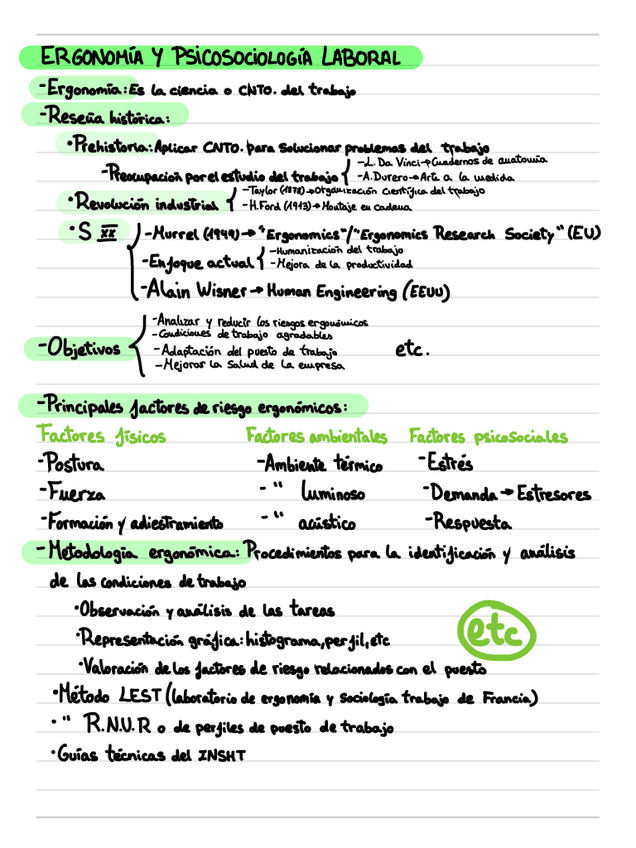 ERGONOMÍA Y PSICOSOCIOLOGÍA LABORAL
-Ergonomía: Es la ciencia o CNTO. del trabajo
-Reseña histórica:
•Prehistoria: Aplicar CNTO. para solucionar problemas del trabajo
-Preocupación por el estudio del trabajo
-L. Da Vinci→Cuadernos de anatomía
-A. Durero→Arte a la medida
•Revolución industrial
-Taylor (1878)→Organización científica del trabajo
-H. Ford (1913)→Montaje en cadena
•S XX
-Murrel (1949)→"Ergonomics"/"Ergonomics Research Society" (EU)
-Enfoque actual
-Humanización del trabajo
-Mejora de la productividad
-Alain Wisner→Human Engineering (EEUU)
-Objetivos
-Analizar y reducir los riesgos ergonómicos
-Condiciones de trabajo agradables
-Adaptación del puesto de trabajo
-Mejorar la salud de la empresa
etc.
-Principales factores de riesgo ergonómicos:
Factores físicos Factores ambientales Factores psicosociales
-Postura -Ambiente térmico -Estrés
-Fuerza -" luminoso -Demanda→Estresores
-Formación y adiestramiento -" acústico -Respuesta
-Metodología ergonómica: Procedimientos para la identificación y análisis
de las condiciones de trabajo
•Observación y análisis de las tareas
•Representación gráfica: histograma, perfil, etc
•Valoración de los factores de riesgo relacionados con el puesto
etc
•Método LEST (laboratorio de ergonomía y sociología trabajo de Francia)
•" R.N.U.R o de perfiles de puesto de trabajo
•Guías técnicas del INSHT